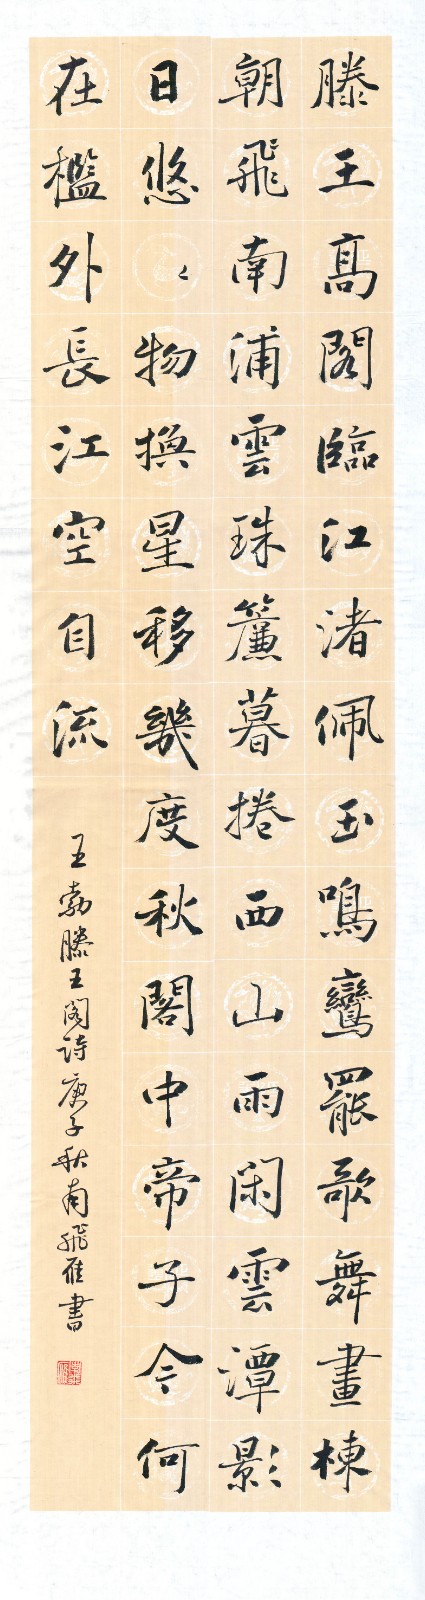 滕王高閣臨江渚佩玉鳴鸞罷歌舞畫棟
朝飛南浦雲珠簾暮捲西山雨閑雲潭影
日悠〻物換星移幾度秋閣中帝子今何
在檻外長江空自流
王勃滕王阁詩庚子秋南飛雁書